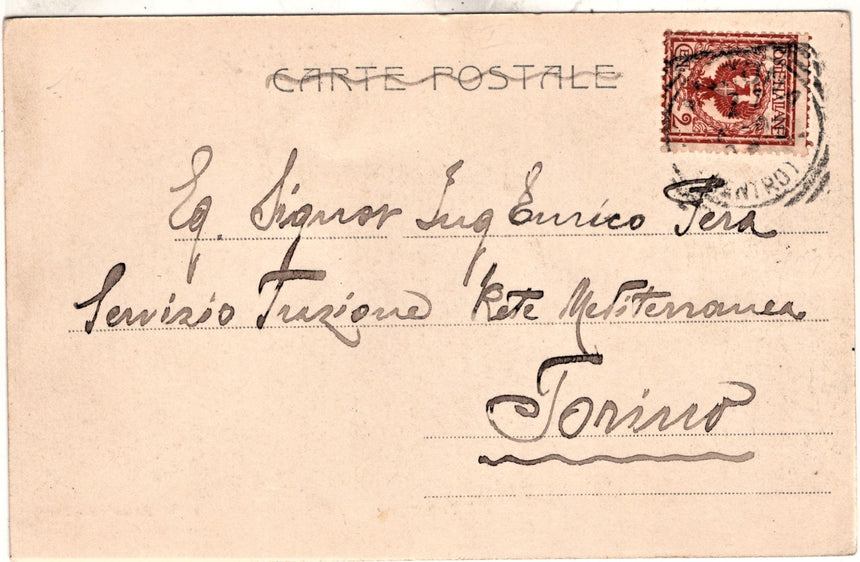 CARTE POSTALE
POSTE ITALIANE
2
CEN
CENTRO
Eg. Signor Ing Enrico Pera
Servizio Trazione Rete Mediterranea
Torino